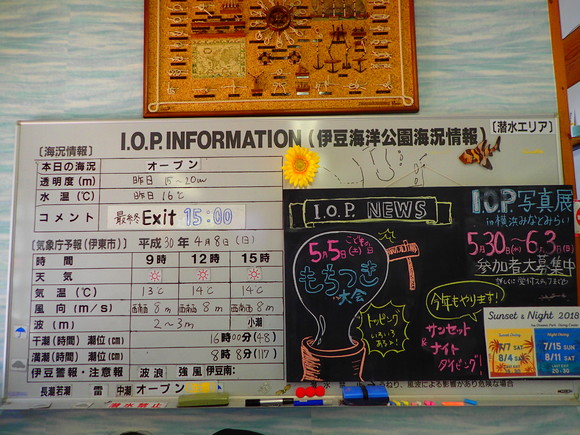 I.O.P. INFORMATION (伊豆海洋公園海況情報)
[潜水エリア]
[海況情報]
本日の海況 オープン
透明度(m) 昨日 15~20m
水温(℃) 昨日 16℃
コメント 最終Exit 15:00
[気象庁予報(伊東市)] 平成30年4月8日(日)
時間 9時 12時 15時
天気
気温(℃) 13℃ 14℃ 14℃
風向(m/s) 西南西 8m 西南西 8m 西南西 8m
波(m) 2~3m 小潮
干潮(時間) 潮位(cm) 16時00分(48)
満潮(時間) 潮位(cm) 8時8分(117)
伊豆警報・注意報 波浪 強風 伊豆南:
長潮若潮 雷 中潮 オープン
潜水禁止
I.O.P. NEWS
5月5日(土)こどもの日
もちつき
大会
トッピング
いろいろ
あるよ!
I.O.P.写真展
in横浜みなとみらい
5月30日(水)~6月3日(日)
参加者大募集中
今年もやります!
サンセット
&ナイト
ダイビング!
Sunset & Night 2018
7/7 SAT
8/4 SAT
7/15 SUN
8/11 SAT
風波による影響があり危険な場合